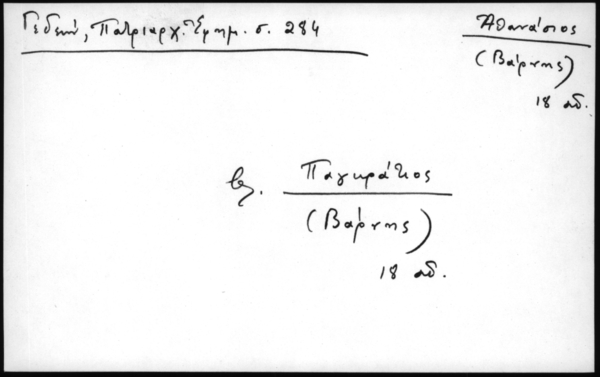 Γεδεών, Πατριαρχ. Ἐφημ. σ. 284
Ἀθανάσιος
(Βάρνης)
18 αἰ.
βλ. Παγκράτιος
(Βάρνης)
18 αἰ.